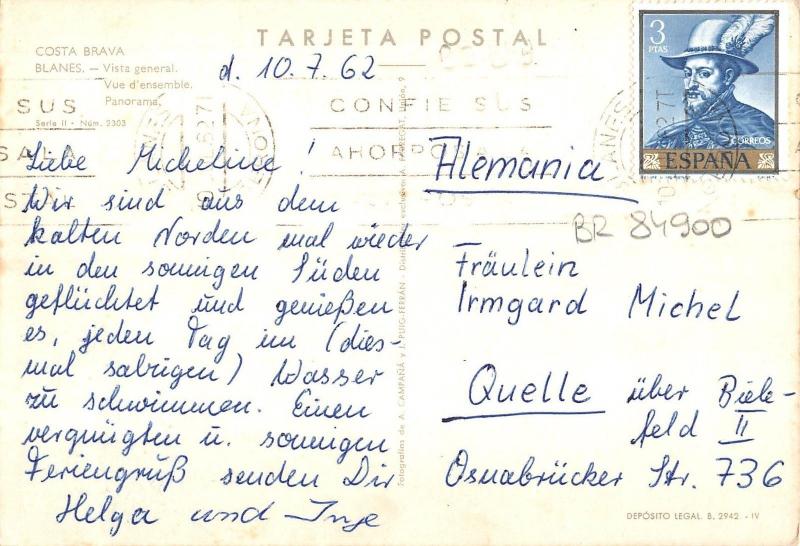 TARJETA POSTAL
COSTA BRAVA
BLANES. — Vista general.
Vue d'ensemble.
Panorama.
Serie II - Núm. 2303
d. 10.7.62
CONFIE SUS
SUS
3
PTAS
CORREOS
ESPAÑA
Liebe Micheline!
Wir sind aus dem
kalten Norden mal wieder
in den sonnigen Süden
geflüchtet und genießen
es, jeden Tag im (dies-
mal salzigen) Wasser
zu schwimmen. Einen
vergnügten u. sonnigen
Feriengruß senden Dir
Helga und Inge
Fotografías de A. CAMPAÑÁ y J. PUIG-FERRÁN
Alemania
BR 84900
Fräulein
Irmgard Michel
Quelle über Biele-
feld II
Osnabrücker Str. 736
DEPÓSITO LEGAL. B. 2942 - IV